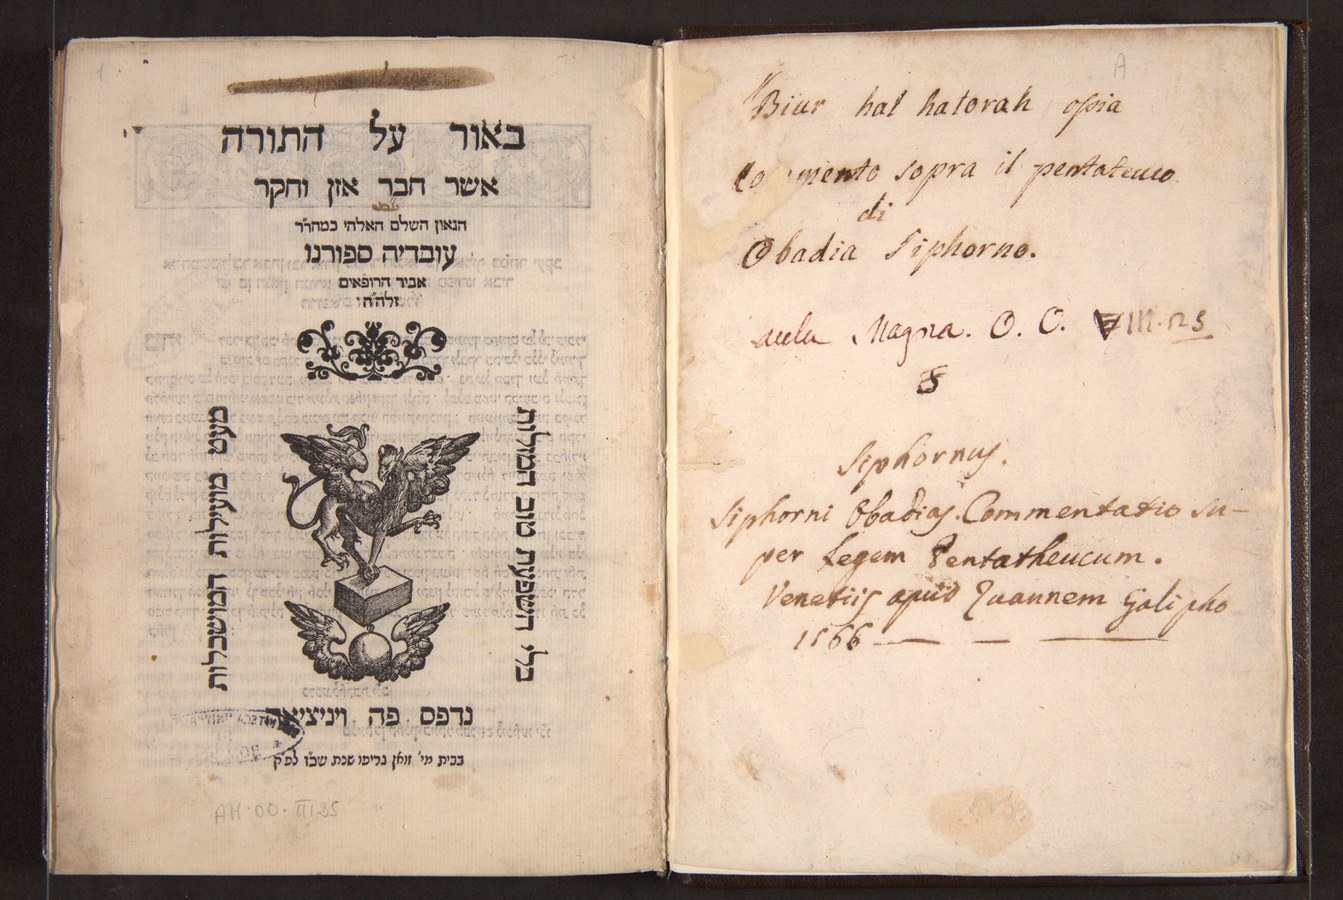 באור על התורה
אשר חבר אזן וחקר
הגאון השלם האלהי כמהר״ר
עובדיה ספורנו
אביר הרופאים
זלה״ה׃
כלי השפעת טוב המזלות
מעט מועילות המושכלות
נדפס פה ויניציאה
בבית מי׳ זואן גריפו שנת שכ״ז לפ״ק
AM·OO·III·25
1
A
Biur hal hatorah ossia
Co mento sopra il pentateuco
di
Obadia Siphorno.
aula Magna. O. O. VIII. 25
Siphornus.
Siphorni Obadias. Commentatio su-
per Legem Pentatheucum.
Venetiis apud Juannem Galipho
1566